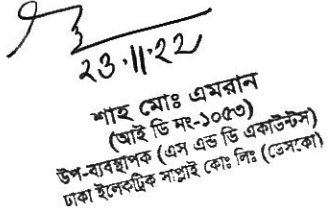 ২৩.১১.২২
শাহ মোঃ এমরান
(আই ডি নং-১০৫৩)
উপ-ব্যবস্থাপক (এস এন্ড ডি একাউন্টস)
ঢাকা ইলেকট্রিক সাপ্লাই কোঃ লিঃ (ডেসকো)